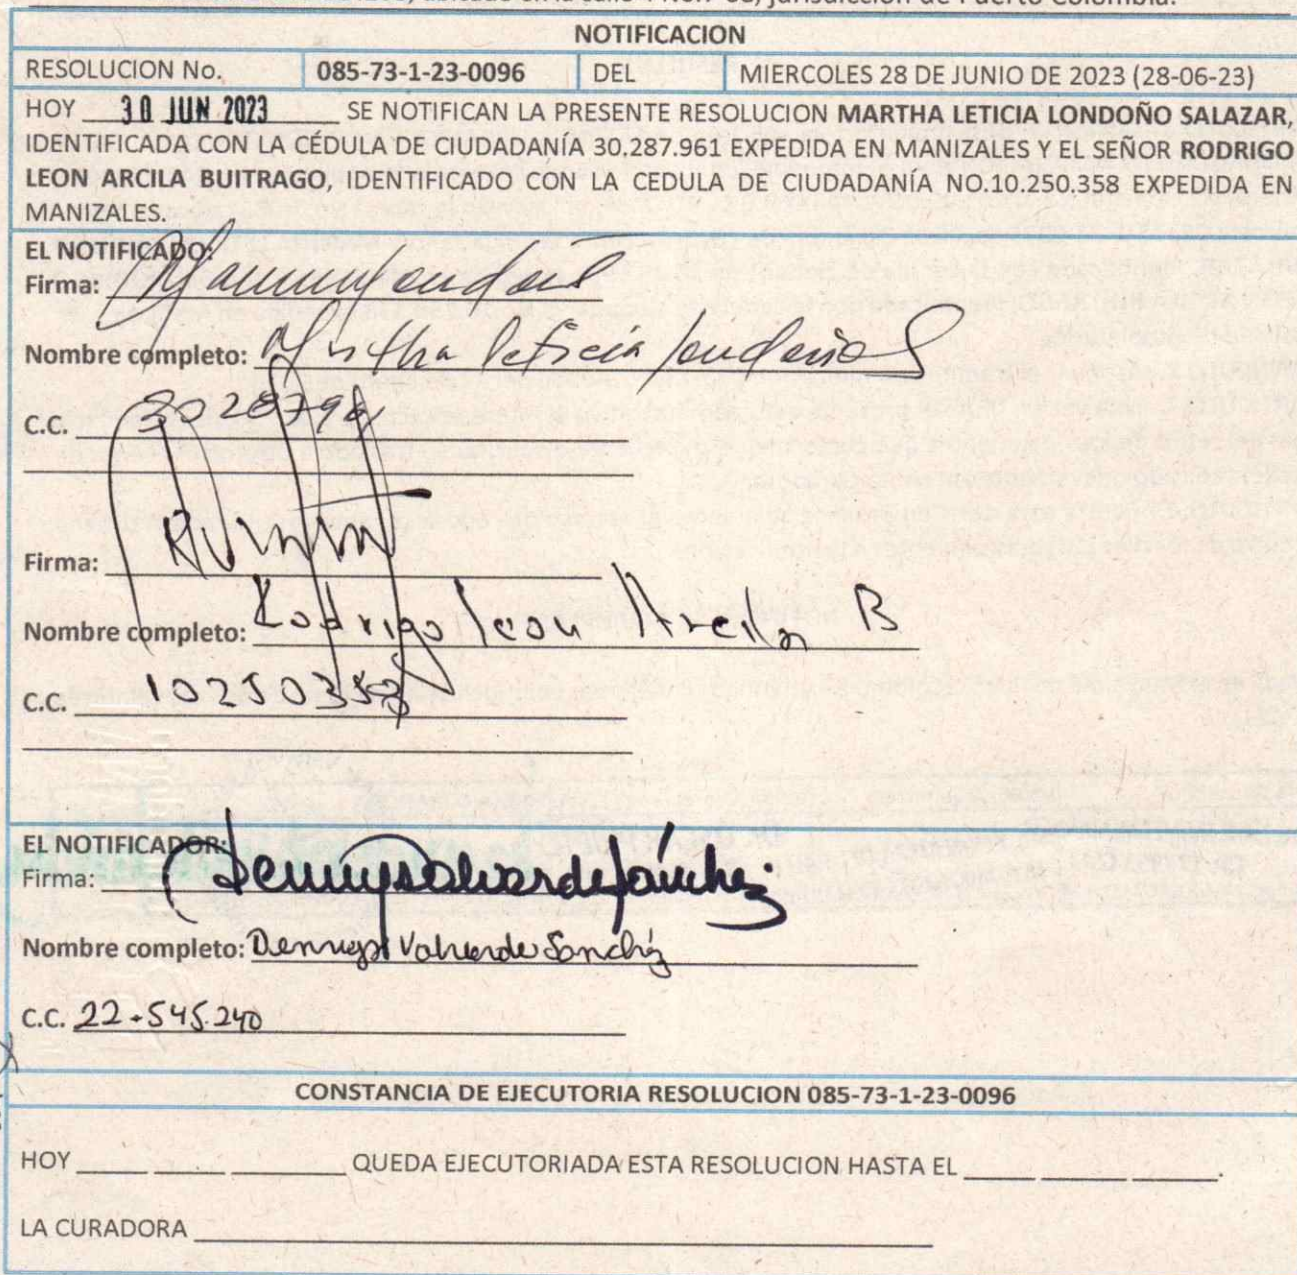 jurisdicción de Puerto Colombia.
NOTIFICACION
RESOLUCION No. 085-73-1-23-0096 DEL MIERCOLES 28 DE JUNIO DE 2023 (28-06-23)
HOY 30 JUN 2023 SE NOTIFICAN LA PRESENTE RESOLUCION MARTHA LETICIA LONDOÑO SALAZAR,
IDENTIFICADA CON LA CÉDULA DE CIUDADANÍA 30.287.961 EXPEDIDA EN MANIZALES Y EL SEÑOR RODRIGO
LEON ARCILA BUITRAGO, IDENTIFICADO CON LA CEDULA DE CIUDADANÍA NO.10.250.358 EXPEDIDA EN
MANIZALES.
EL NOTIFICADO:
Firma:
Nombre completo: Martha leticia londoño S
C.C. 3028796
Firma:
Nombre completo: Rodrigo leon Arcila B
C.C. 10250358
EL NOTIFICADOR:
Firma: Dennys Valverde Sánchez
Nombre completo: Dennys Valverde Sanchez
C.C. 22.545.240
CONSTANCIA DE EJECUTORIA RESOLUCION 085-73-1-23-0096
HOY QUEDA EJECUTORIADA ESTA RESOLUCION HASTA EL .
LA CURADORA